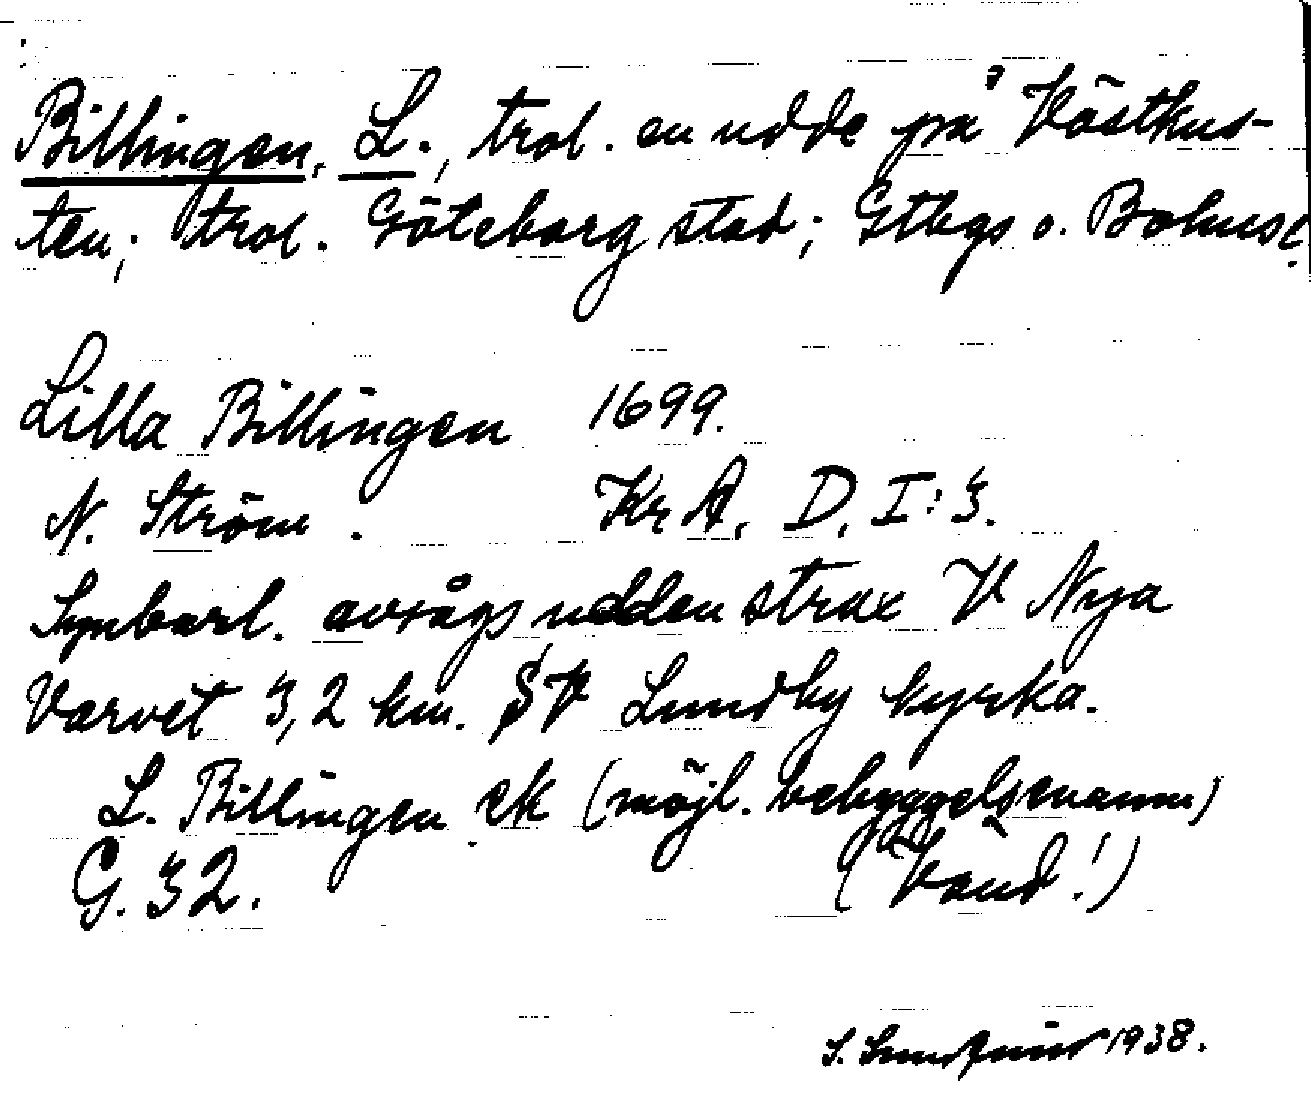 Billingen, L., trol. en udde på Västkus-
ten; trol. Göteborg stad; Gtbgs o. Bohusl.
Lilla Billingen 1699.
N. Ström. KrA, D, I:3.
Synbarl. avsågs udden strax V Nya
Varvet 3,2 km. SV Lundby kyrka.
L. Billingen ek (möjl. bebyggelsenamn)
G. 32. (Vänd!)
S. 1938.